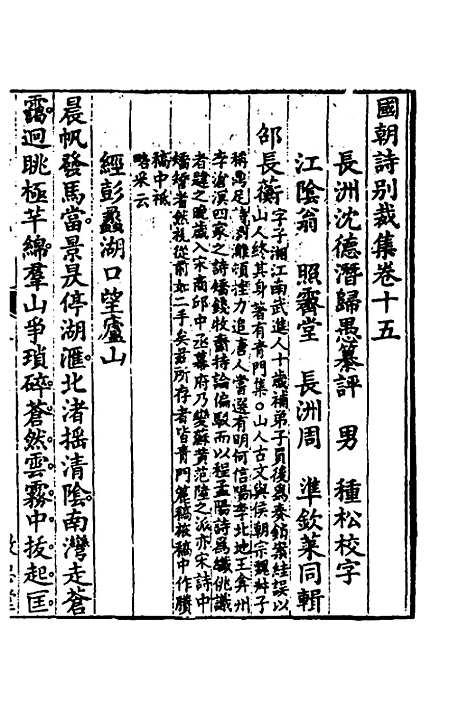 國朝詩別裁集卷十五
長洲沈德潛歸愚纂評　男　種松校字
江陰翁　照霽堂　長洲周　準欽萊同輯
邵長蘅字子湘江南武進人十歲補弟子員後為奏銷案絓誤以
山人終其身著有青門集○山人古文與侯朝宗魏叔子
稱鼎足詩刻雕須挫力追唐人嘗選有明何信陽李北地王弇州
李滄溟四家之詩矯錢牧齋持論偏駁而以程孟陽詩為纖佻識
者韙之晚歲入宋商邱中丞幕府乃變蘇黃范陸之派亦宋詩中
矯矯者然較從前如二手矣茲所存者皆青門簏稿旅稿中作賸
稿中祗
略采云
經彭蠡湖口望廬山
晨帆發馬當景昃停湖滙北渚搖清陰南灣走蒼
靄迥眺極芊綿羣山爭瑣碎蒼然雲霧中拔起匡